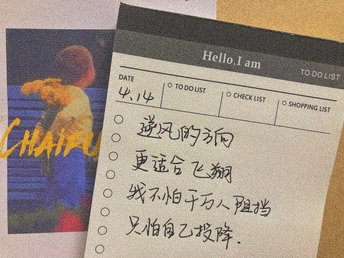 Hello,I am
TO DO LIST
DATE
4.14
TO DO LIST
CHECK LIST
SHOPPING LIST
逆风的方向
更适合飞翔
我不怕千万人阻挡
只怕自己投降.